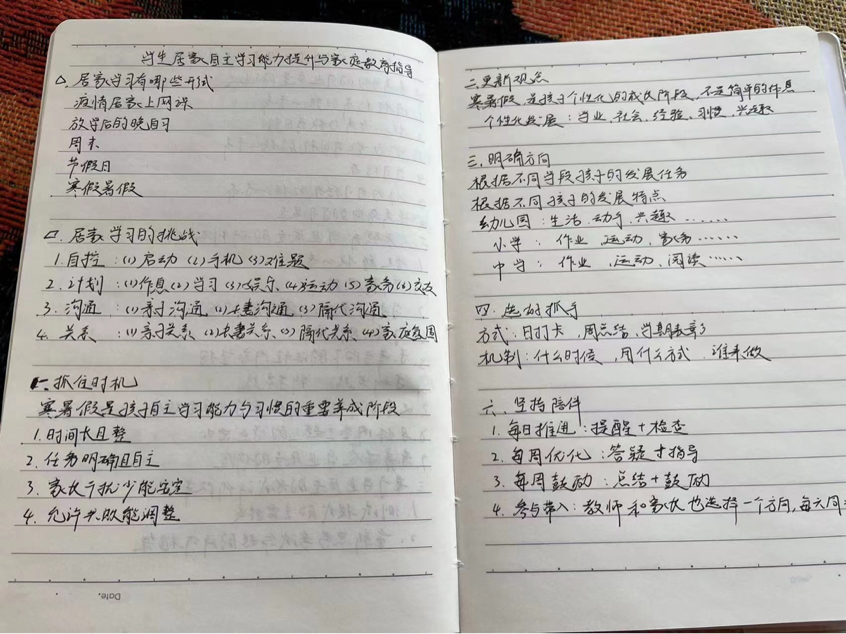 学生居家自主学习能力提升与家庭教育指导
△. 居家学习有哪些形式
疫情居家上网课
放学后的晚自习
周末
节假日
寒假暑假
口. 居家学习的挑战
1. 自控：(1)启动 (2)手机 (3)难题
2. 计划：(1)作息(2)学习(3)娱乐(4)运动(5)家务(6)交友
3. 沟通：(1)亲子沟通(2)夫妻沟通(3)隔代沟通
4. 关系：(1)亲子关系(2)夫妻关系(3)隔代关系(4)家庭氛围
一. 抓住时机
寒暑假是孩子自主学习能力与习惯的重要养成阶段
1. 时间长且整
2. 任务明确且自主
3. 家长干扰少能安定
4. 允许失败能调整
Date.
二. 更新观点
寒暑假是孩子个性化的成长阶段，不是简单的休息
个性化发展：学业、社会、经验、习惯、兴趣
三. 明确方向
根据不同学段孩子的发展任务
根据不同孩子的发展特点
幼儿园：生活、动手、兴趣……
小学：作业、运动、家务……
中学：作业、运动、阅读……
四. 选好抓手
方式：日打卡，周总结，学期表彰
机制：什么时候，用什么方式，谁来做
六. 坚持陪伴
1. 每日推进：提醒+检查
2. 每周优化：答疑+指导
3. 每周鼓励：总结+鼓励
4. 参与带入：教师和家长也选择一个方向，每天同